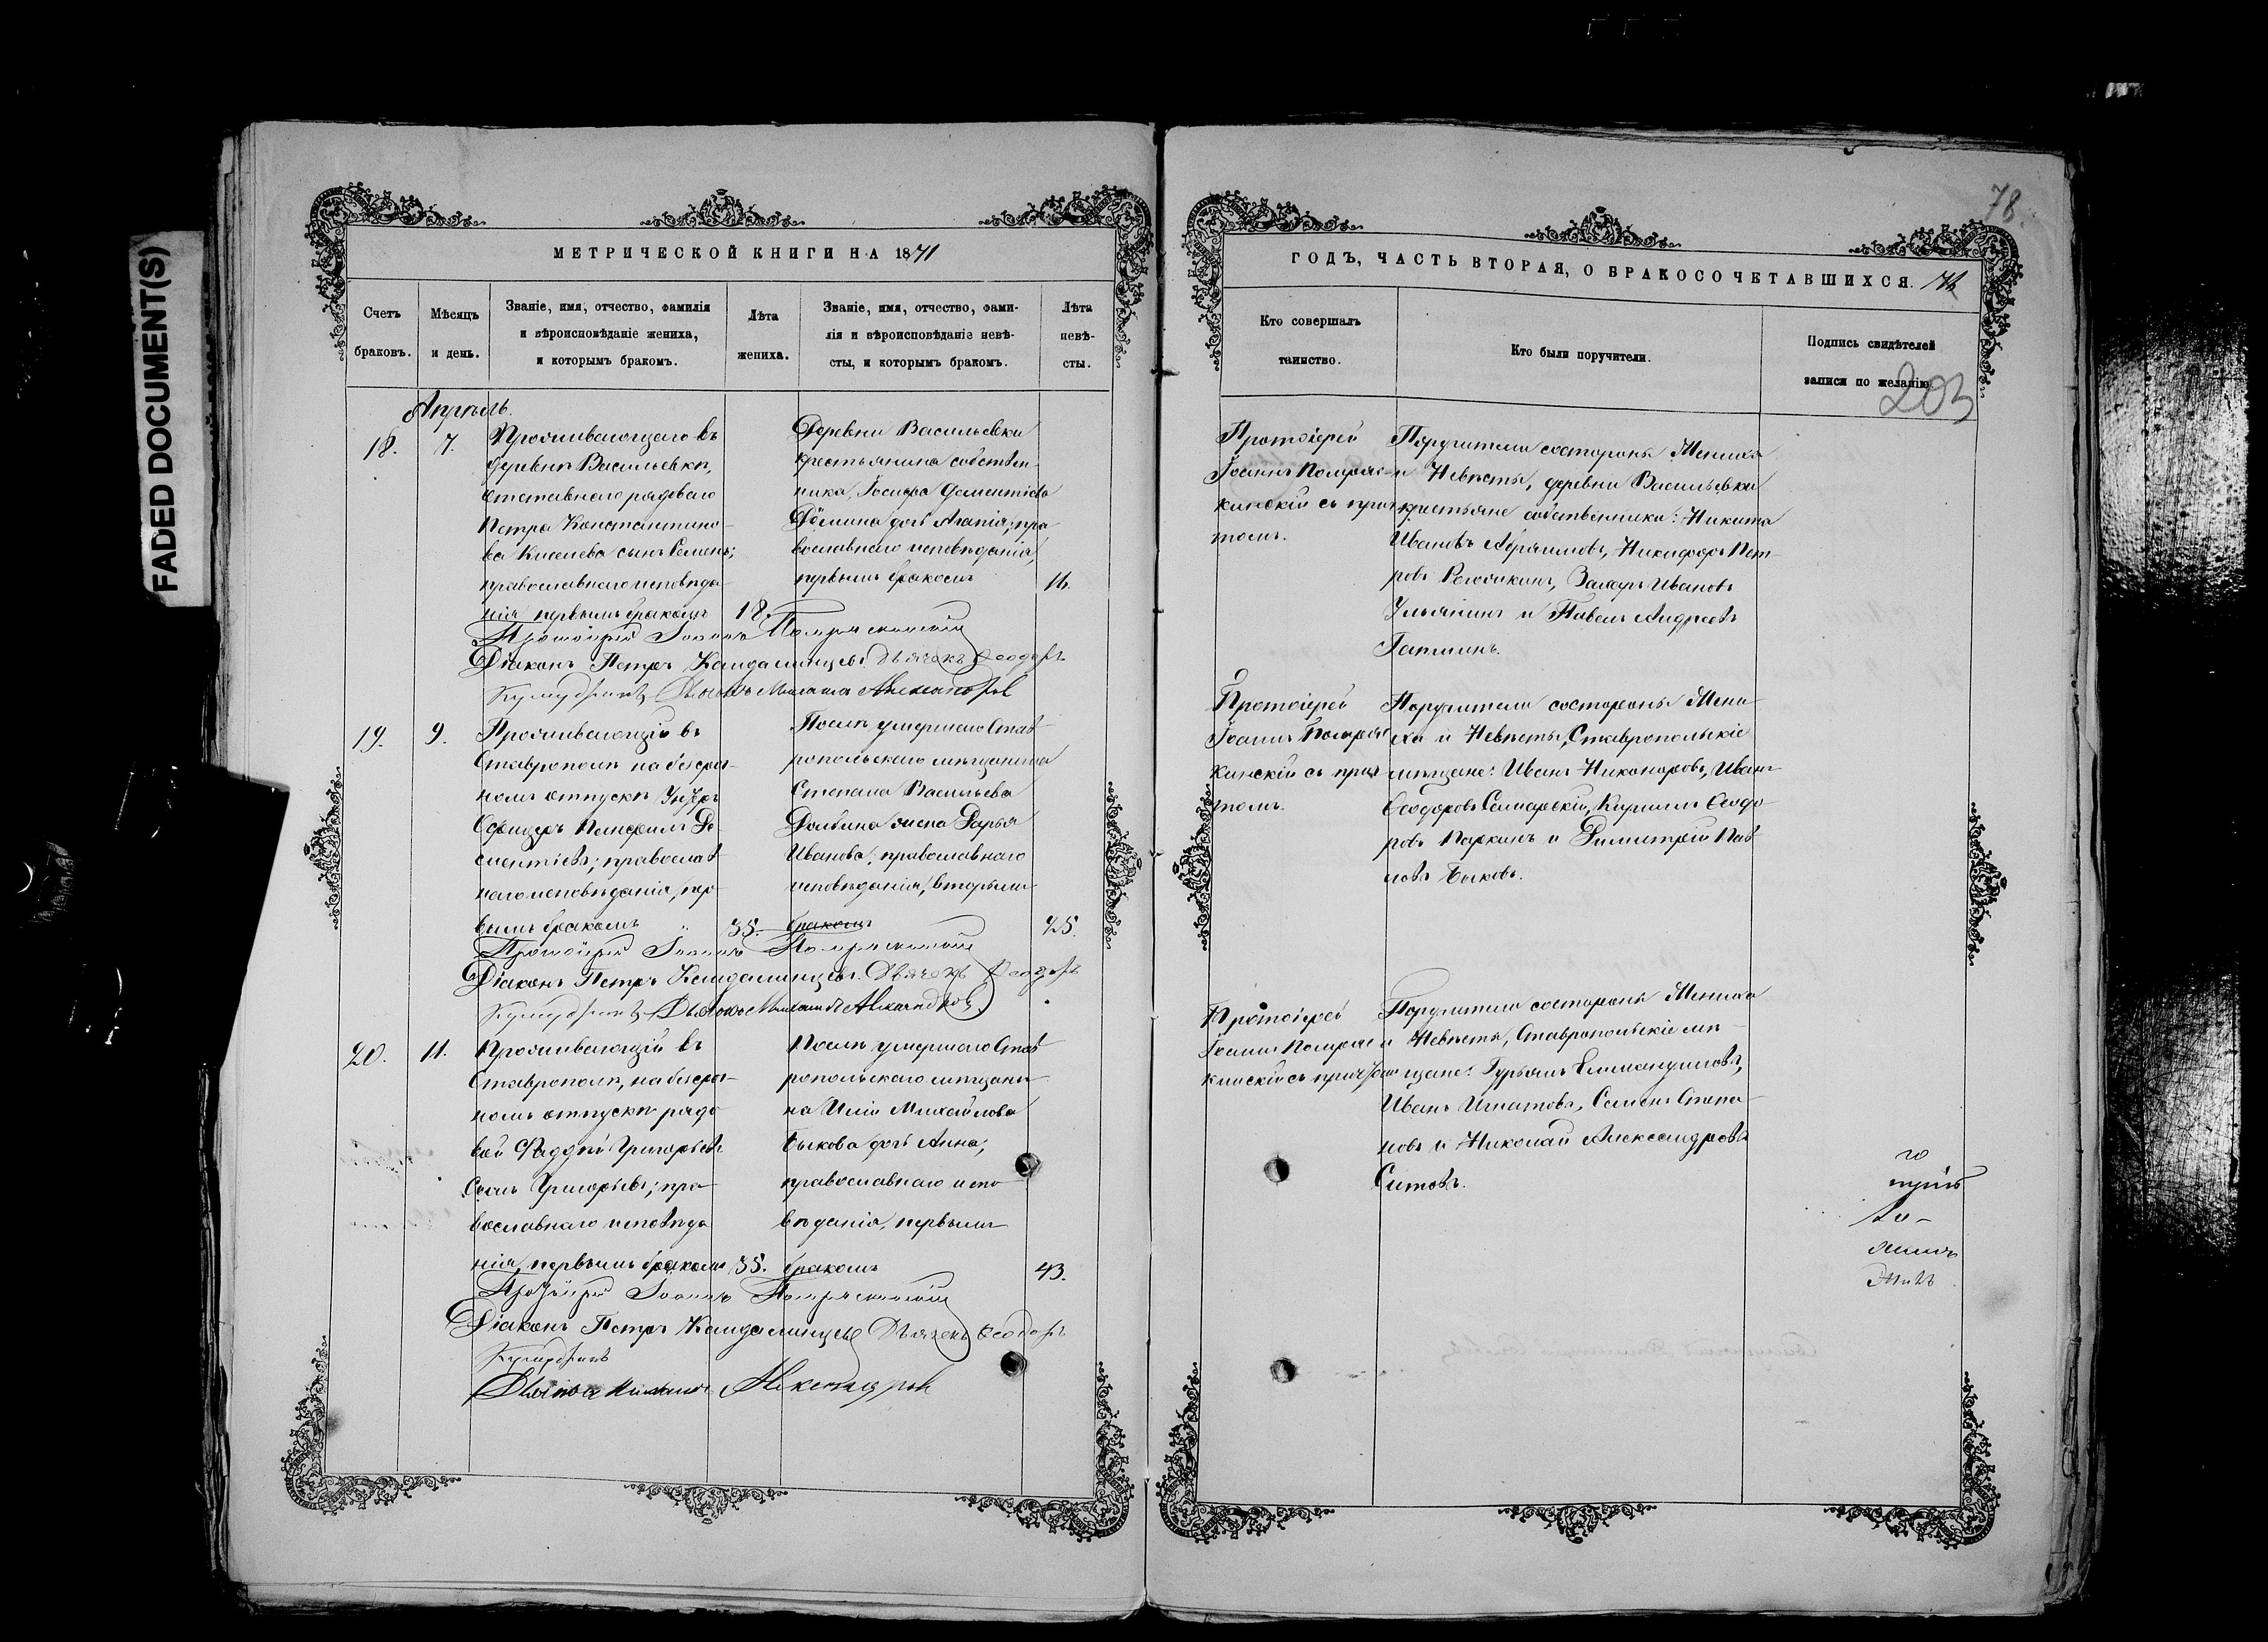 FADED DOCUMENT(S)
МЕТРИЧЕСКОЙ КНИГИ НА 1871
Счетъ браковъ.
Мѣсяцъ и день.
Званіе, имя, отчество, фамилія
и вѣроисповѣданіе жениха,
и которымъ бракомъ.
Лѣта
жениха.
Званіе, имя, отчество, фами-
лія и вѣроисповѣданіе невѣ-
сты, и которымъ бракомъ.
Лѣта
невѣ-
сты.
Апрѣль.
18.
7.
Проживающаго въ
деревнѣ Васильевкѣ,
отставнаго рядоваго
Петра Константино-
ва Киселева сынъ Семенъ;
православнаго исповѣда-
нія первымъ бракомъ
18.
Деревни Васильевки
крестьянина собствен-
ника, Іосифа Дементіева
Дёмина дочь Агапія; пра
вославнаго исповѣданія,
первымъ бракомъ
16.
Протоіерей Іоаннъ Помряскинскій
Діаконъ Петръ Кандалинцевъ Дьячекъ Ѳеодоръ
19.
9.
Проживающій въ
Ставрополѣ на безсроч-
номъ отпускѣ Унтеръ
Офицеръ Памфилъ Де-
ментіевъ; православ
наго исповѣданія, пер-
вымъ бракомъ
35.
Послѣ умершаго Став
ропольскаго мѣщанина
Степана Васильева
жена Дарья
Иванова; православнаго
исповѣданія, вторымъ
бракомъ
25.
Протоіерей Іоаннъ Помряскинскій
Діаконъ Петръ Кандалинцевъ Дьячекъ Ѳеодоръ
20.
11.
Проживающій въ
Ставрополѣ, на безсроч-
номъ отпускѣ рядо
вой Фаддей Григорьевъ
Григорьевъ; пра-
вославнаго исповѣда
нія, первымъ бракомъ
35.
Послѣ умершаго Став
ропольскаго мѣщани-
на Иліи Михайлова
Быкова дочь Анна;
православнаго испо
вѣданія, первымъ
бракомъ
43.
Протоіерей Іоаннъ Помряскинскій
Діаконъ Петръ Кандалинцевъ Дьячекъ Ѳеодоръ
78.
ГОДЪ, ЧАСТЬ ВТОРАЯ, О БРАКОСОЧЕТАВШИХСЯ.
Кто совершалъ
таинство.
Кто были поручители.
Подпись свидѣтелей
записи по желанію.
203
Протоіерей
Іоаннъ Помряс-
кинскій съ прич
томъ.
Поручители состороны Жениха
и Невѣсты, деревни Васильевки
крестьяне собственники: Никита
Ивановъ Абрамовъ, Никифоръ Пет-
ровъ Захаръ Ивановъ
Ульянинъ и Павелъ Андреевъ
Протоіерей
Іоаннъ Помряс
кинскій съ прич
томъ.
Поручители состороны Жени-
ха и Невѣсты, Ставропольскіе
мѣщане: Иванъ Никоноровъ, Иванъ
Ѳеодоровъ Самарскій, Кириллъ Ѳеодо-
ровъ Паркинъ и Димитрій Пав
ловъ Быковъ.
Протоіерей
Іоаннъ Помряс
кинскій съ причтомъ
Поручители состороны Жениха
и Невѣсты, Ставропольскіе мѣ-
щане: Гурьянъ
Иванъ Игнатовъ, Семенъ Степа-
новъ и Николай Александровъ
Ситовъ.